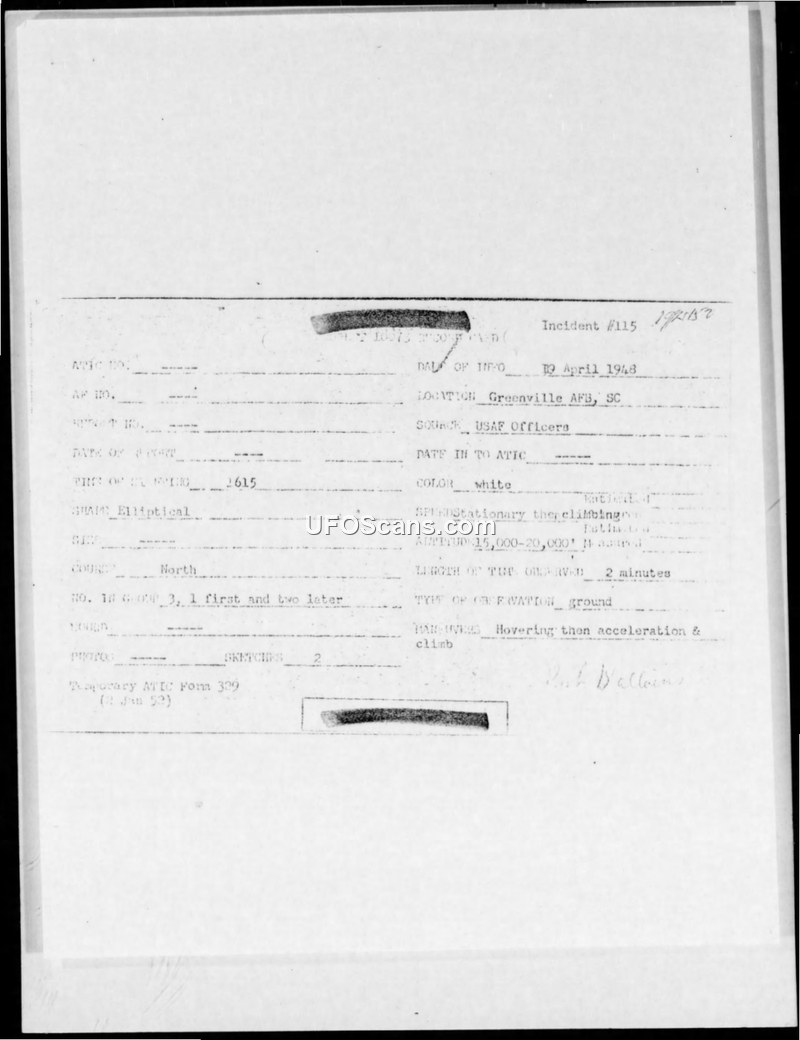 Incident #115
ATIC NO. -----
DATE OF INFO 19 April 1948
AF NO. ----
LOCATION Greenville AFB, SC
REPORT NO. ----
SOURCE USAF Officers
DATE OF REPORT ----
DATE IN TO ATIC -----
TIME OF SIGHTING 1615
COLOR white
SHAPE Elliptical
SPEED Stationary then climbing
SIZE -----
ALTITUDE 15,000-20,000'
COURSE North
LENGTH OF TIME OBSERVED 2 minutes
NO. IN GROUP 3, 1 first and two later
TYPE OF OBSERVATION ground
SOUND -----
MANEUVERS Hovering then acceleration &
climb
PHOTOS ----- SKETCHES 2
Temporary ATIC Form 329
(2 Jan 52)
UFOScans.com